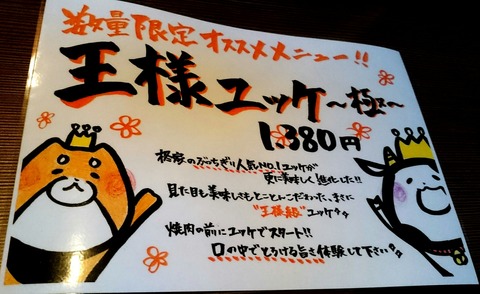 数量限定オススメメニュー!!
王様ユッケ~極み~
1,380円
格家のぶっちぎり人気No.1ユッケが
更に美味しく進化した!!
見た目も美味しさもとことんこだわった、まさに
"王様級"ユッケ
焼肉の前にユッケでスタート!!
口の中でとろける旨さ体験して下さい